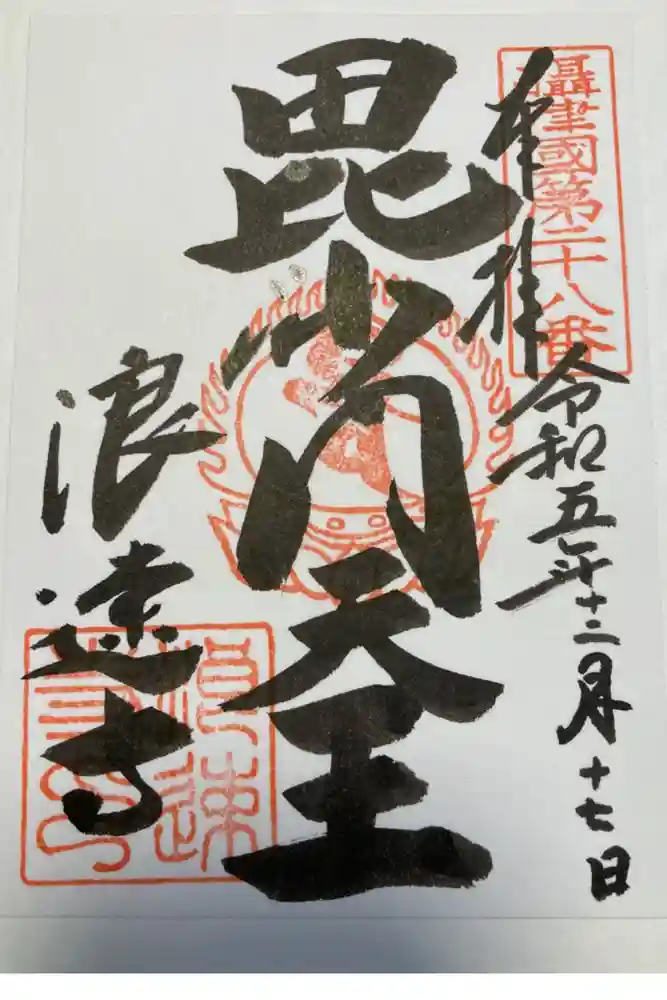 攝津國第二十八番
奉拝
令和五年十二月十七日
毘沙門天王
浪速寺
浪速